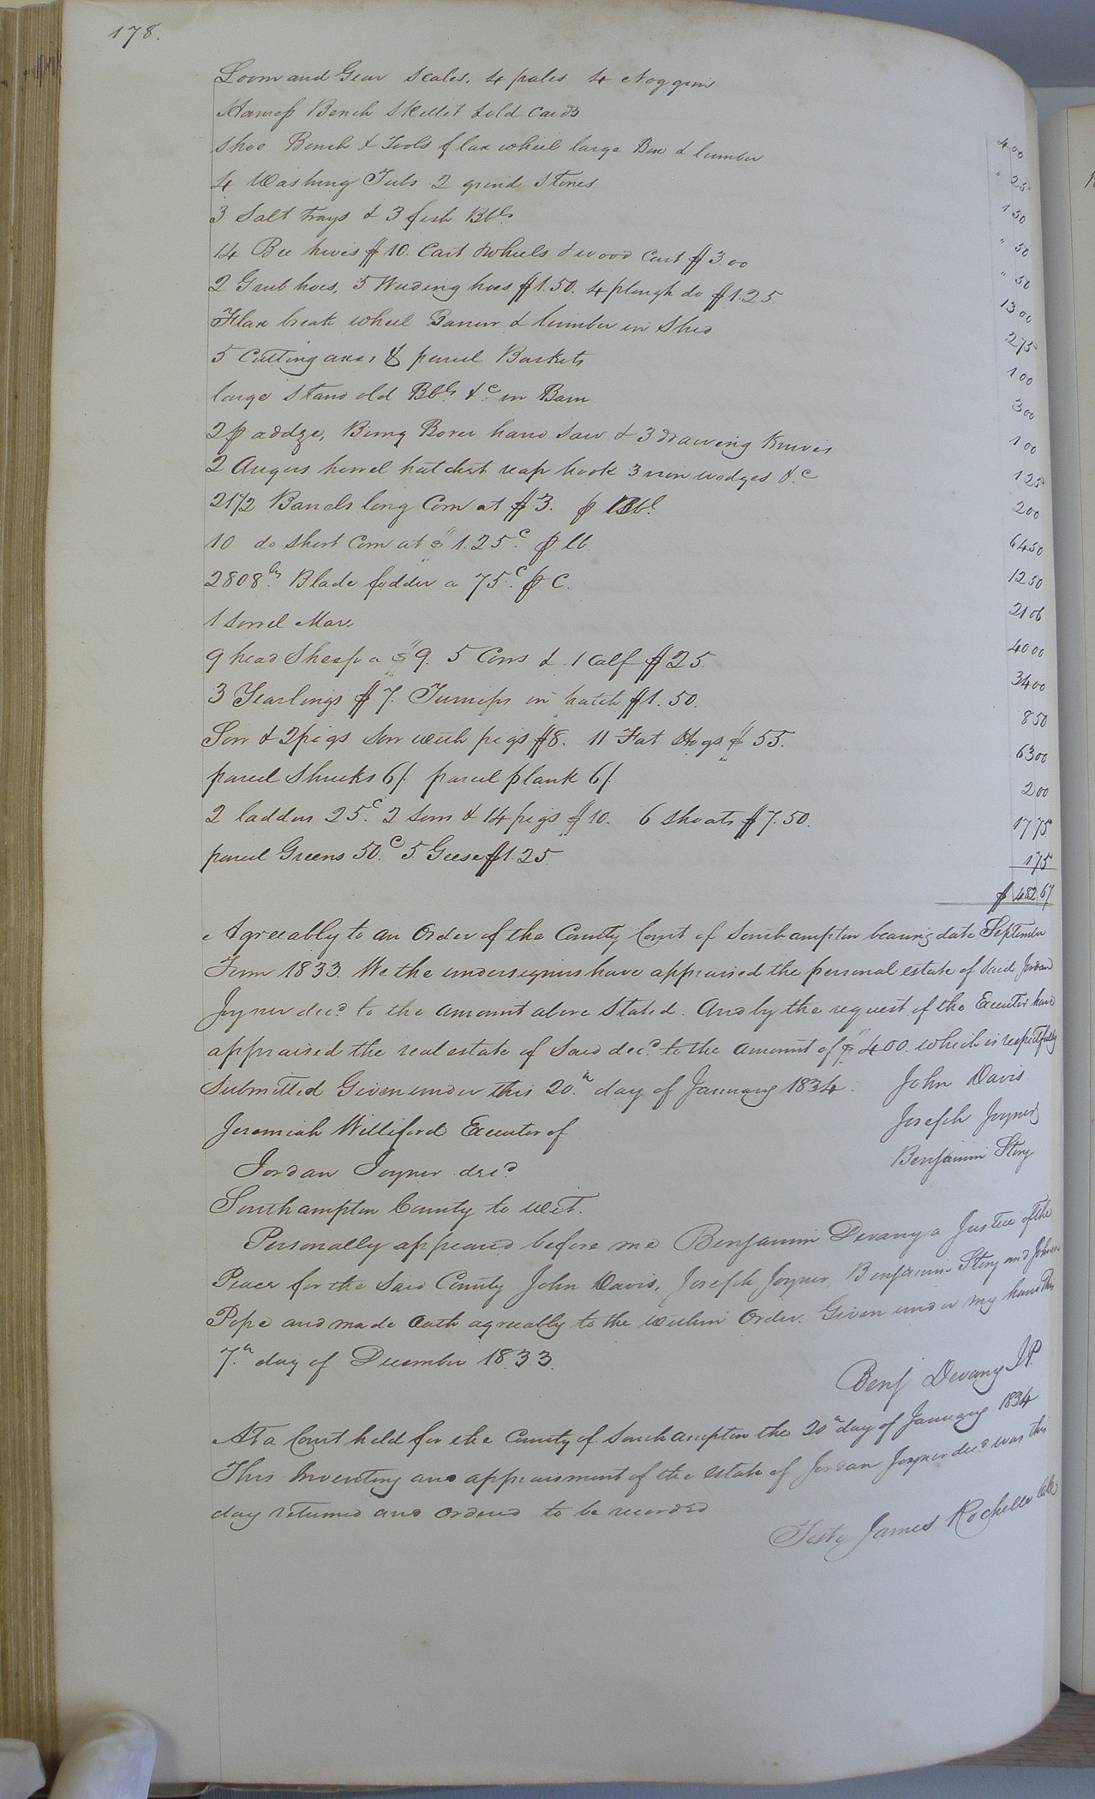 178.
Loom and Gear Scales, 4 pales 4 Noggins 4 00
Harness Bench Skillet & old Cards " 25
Shoe Bench & Tools flax wheel large Box & lumber 1 50
4 Washing Tubs 2 grind Stones " 50
3 Salt trays & 3 fish Bbls " 50
14 Bee hives $10. Cart & wheels & wood Cart $3.00 13 00
2 Grub hoes, 5 Weeding hoes $1.50. 4 plough do $1.25 2 75
Flax break wheel Barrow & lumber in Shed 1 00
5 Cutting axes & parcel Baskets 3 00
large Stand old Bbls &c in Barn 1 00
2 p addze, Bung Borer hand Saw & 3 drawing Knives 1 25
2 Augurs howel hatchet reap hook 3 iron wedges &c 2 00
21 1/2 Barrels long Corn at $3. p Bbl 64 50
10 do Short Corn at $1.25c p lb. 12 50
2808 lbs Blade fodder a 75c p C. 21 06
1 Sorrel Mare 40 00
9 head Sheep a $9. 5 Cows & 1 Calf $25 34 00
3 Yearlings $7. Turnips in patch $1.50. 8 50
Sow & 2 pigs Sow with pigs $8. 11 Fat Hogs $55. 63 00
parcel Shucks 6/ parcel plank 6/ 2 00
2 ladders 25c 2 Sows & 14 pigs $10. 6 Shoats $7.50. 17 75
parcel Greens 50c 5 Geese $1.25 1 75
$ 482 67
Agreeably to an Order of the County Court of Southampton bearing date September
Term 1833. We the undersigners have appraised the personal estate of said Jordan
Joyner decd to the amount above Stated. And by the request of the Executor have
appraised the real estate of Said decd to the amount of $400. which is respectfully
Submitted Given under this 20th day of January 1834. John Davis
Joseph Joyner
Jeremiah Williford Executor of Benjamin Story
Jordan Joyner decd
Southampton County to wit.
Personally appeared before me Benjamin Devany a Justice of the
Peace for the Said County John Davis, Joseph Joyner Benjamin Story and
Pope and made Oath agreeably to the within Order. Given under my hand this
7th day of December 1833.
Benj Devany J.P.
At a Court held for the County of Southampton the 20th day of January 1834
This Inventory and appraisment of the estate of Jordan Joyner decd was this
day returned and ordered to be recorded
Teste James Rochelle